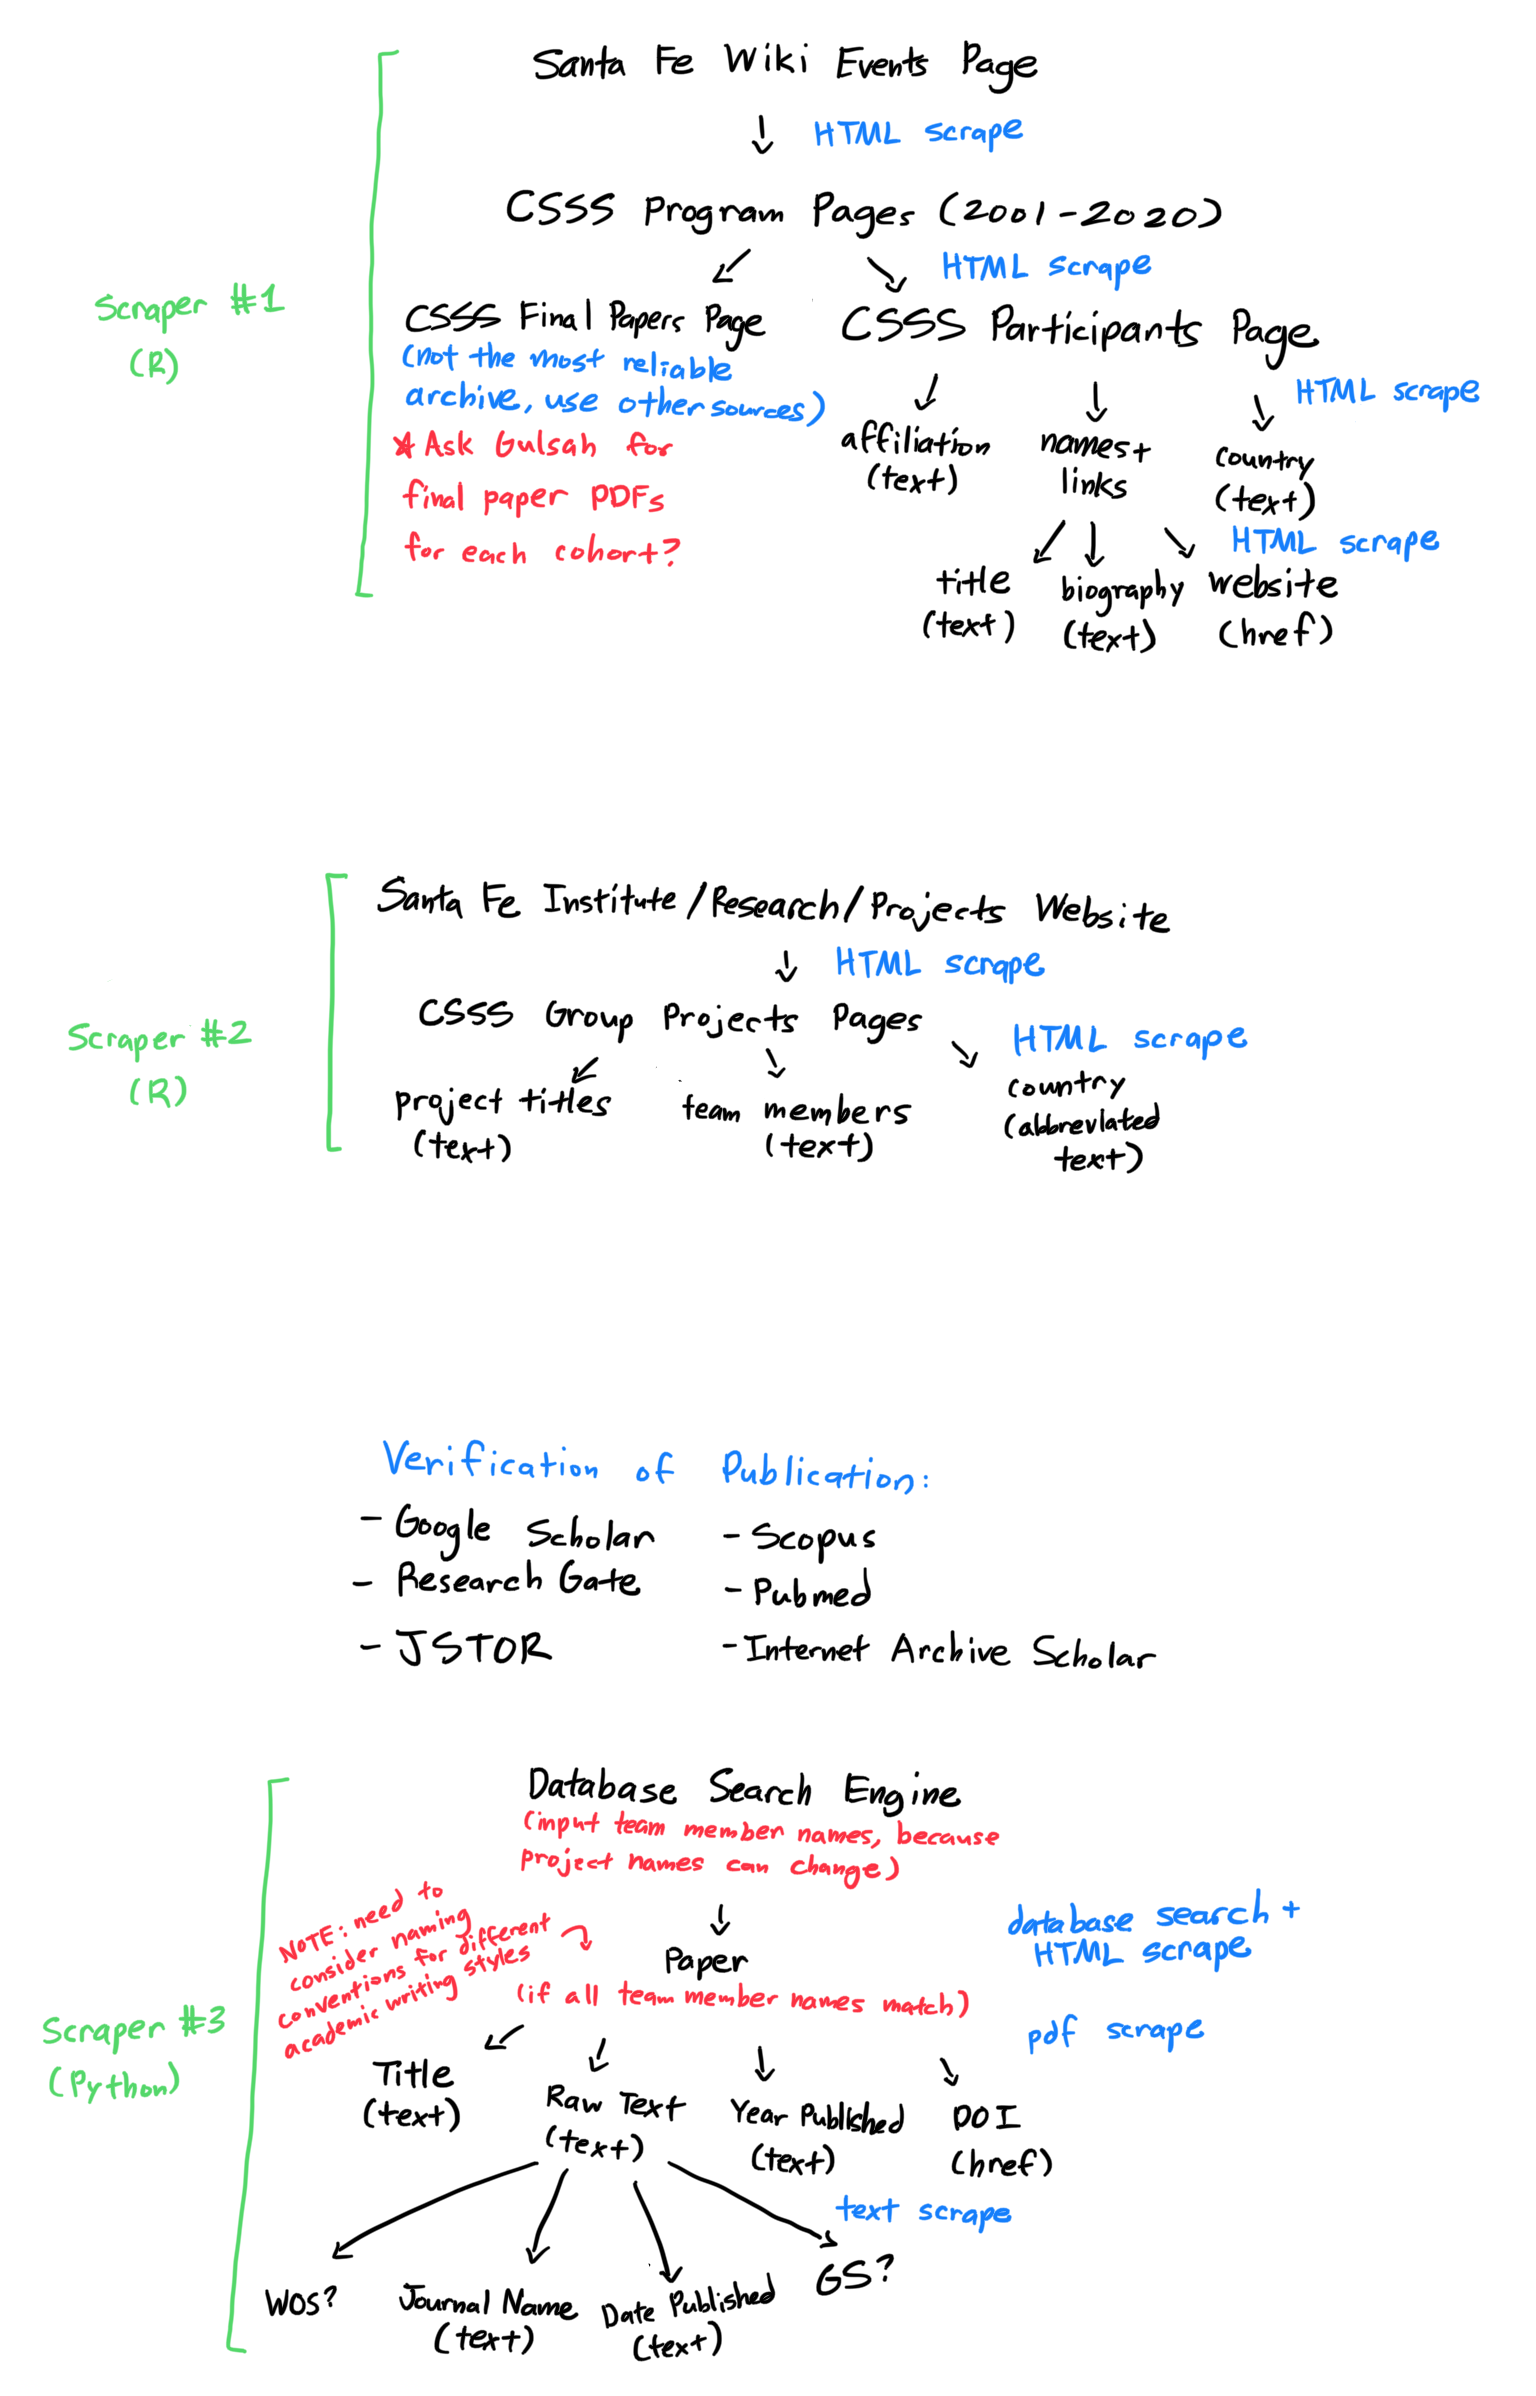 Santa Fe Wiki Events Page
HTML scrape
CSSS Program Pages (2001-2020)
HTML scrape
Scraper #1
(R)
CSSS Final Papers Page
(not the most reliable
archive, use other sources)
* Ask Gulsah for
final paper PDFs
for each cohort?
CSSS Participants Page
HTML scrape
affiliation
(text)
names+
links
country
(text)
HTML scrape
title
(text)
biography
(text)
website
(href)
Santa Fe Institute/Research/Projects Website
HTML scrape
Scraper #2
(R)
CSSS Group Projects Pages
HTML scrape
project titles
(text)
team members
(text)
country
(abbreviated
text)
Verification of Publication:
- Google Scholar
- Research Gate
- JSTOR
- Scopus
- Pubmed
- Internet Archive Scholar
Database Search Engine
(input team member names, because
project names can change)
NOTE: need to
consider naming
conventions for different
academic writing styles
database search +
HTML scrape
Paper
(if all team member names match)
Scraper #3
(Python)
pdf scrape
Title
(text)
Raw Text
(text)
Year Published
(text)
DOI
(href)
text scrape
WOS?
Journal Name
(text)
Date Published
(text)
GS?